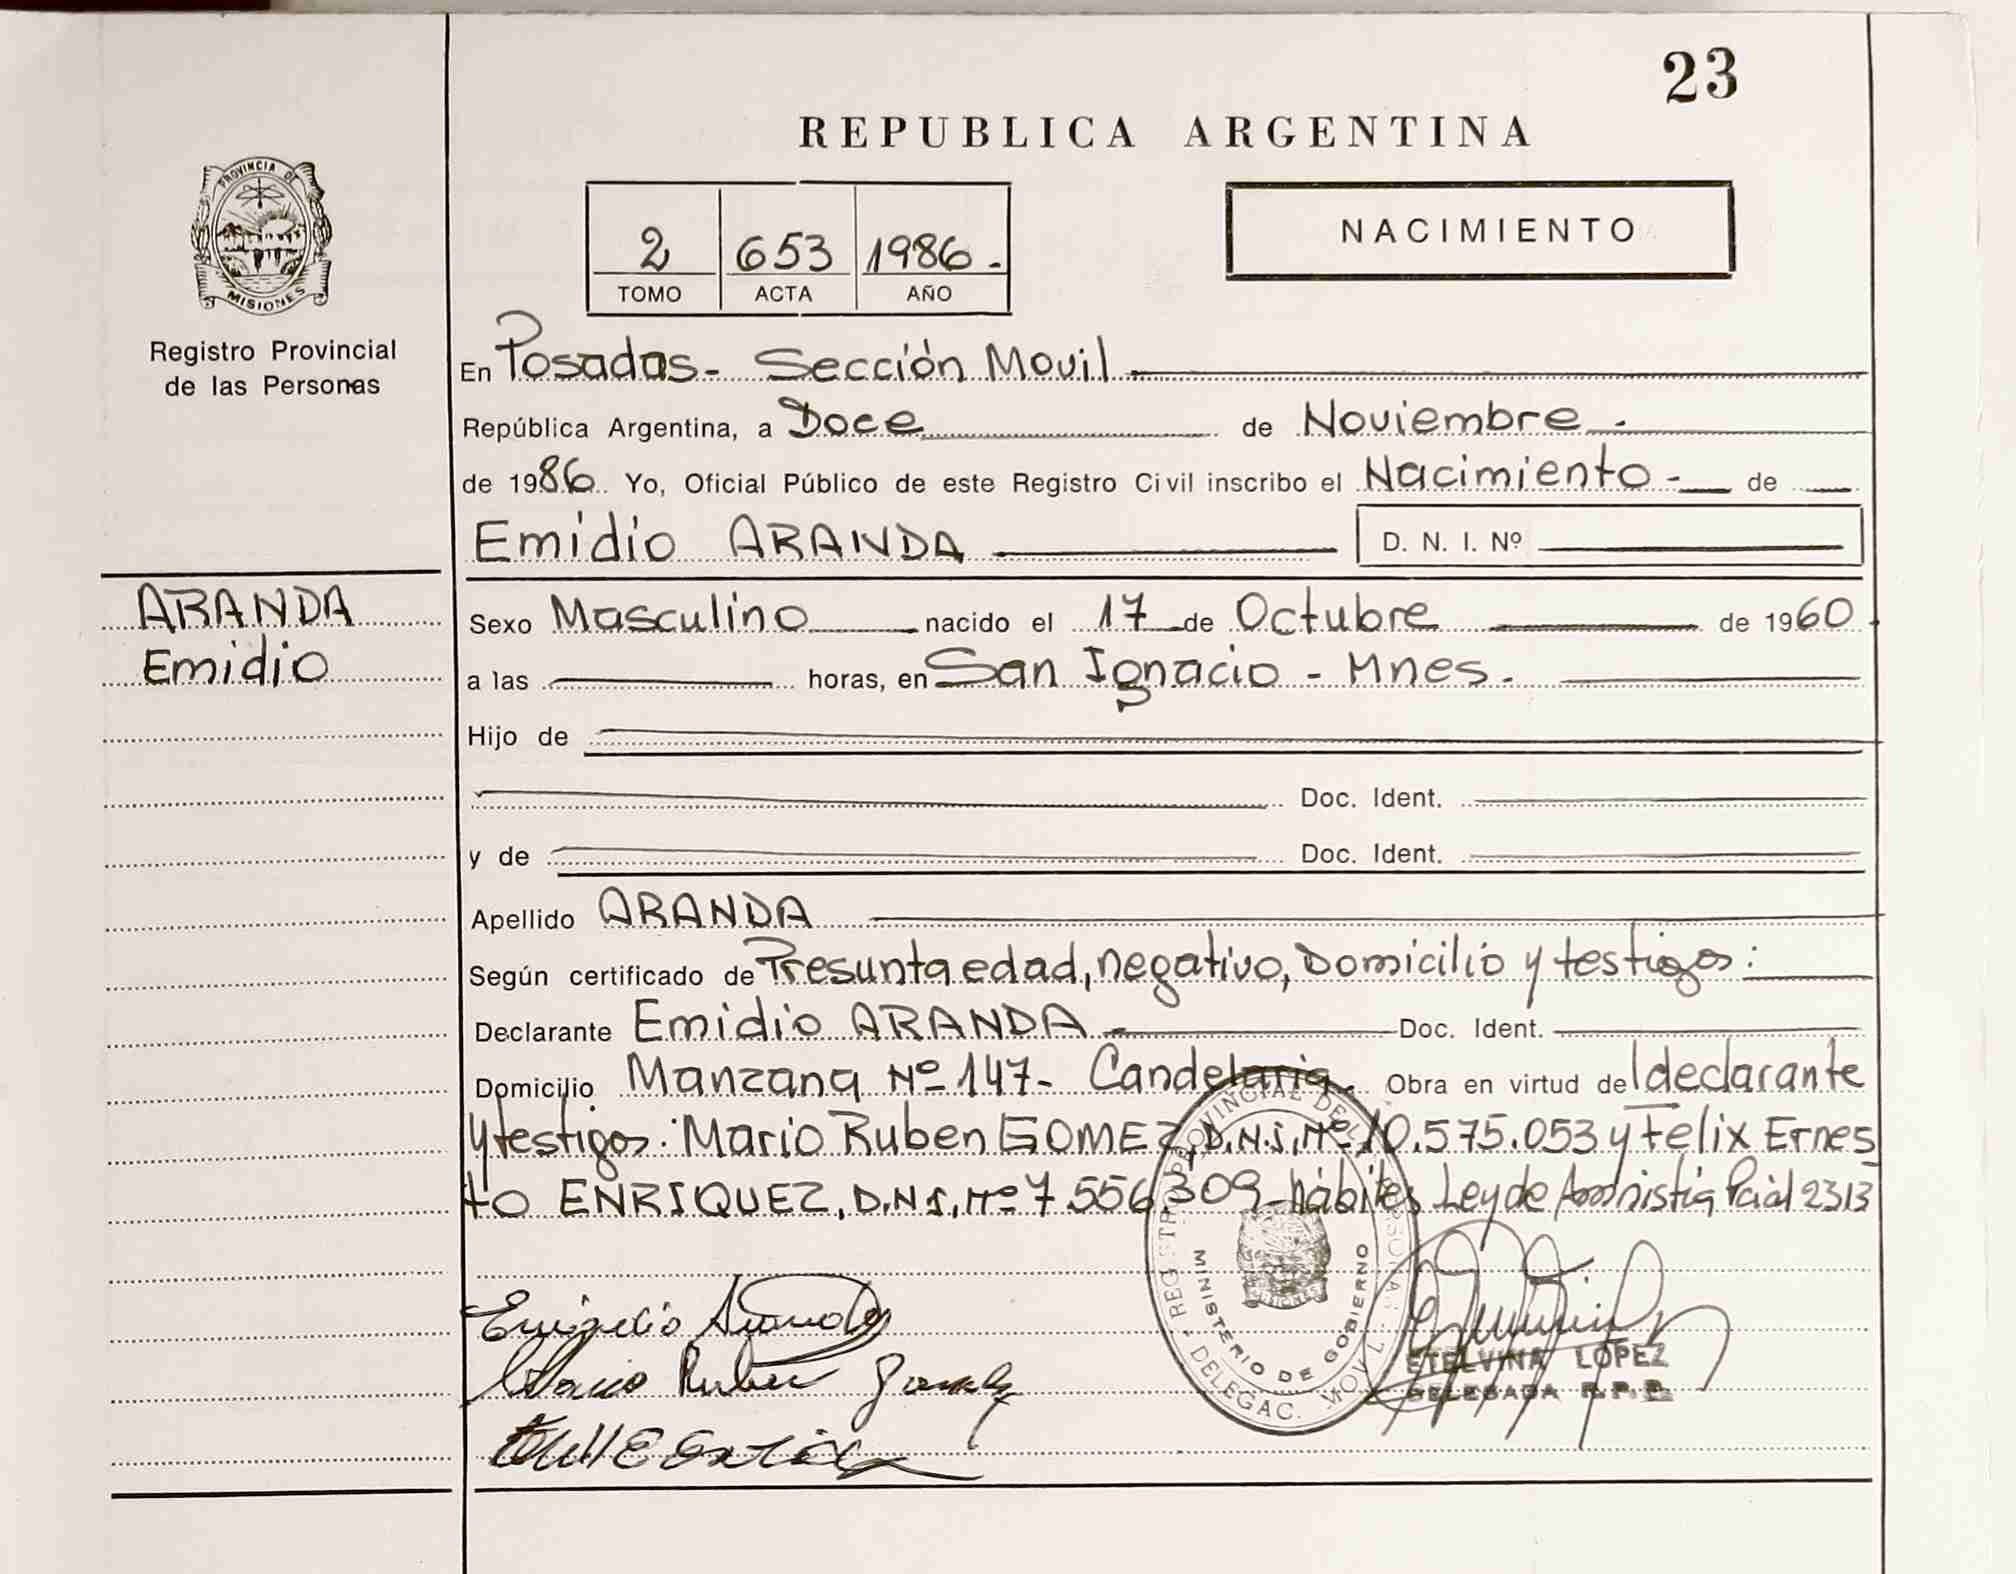 23
REPUBLICA ARGENTINA
PROVINCIA DE
MISIONES
Registro Provincial
de las Personas
2 653 1986.-
TOMO ACTA AÑO
NACIMIENTO
En Posadas- Sección Movil
República Argentina, a Doce de Noviembre.-
de 1986. Yo, Oficial Público de este Registro Civil inscribo el Nacimiento- de
Emidio ARANDA D. N. I. Nº
ARANDA
Emidio
Sexo Masculino nacido el 17 de Octubre de 1960.
a las horas, en San Ignacio - Mnes.-
Hijo de
Doc. Ident.
y de Doc. Ident.
Apellido ARANDA
Según certificado de Presunta edad, negativo, Domicilio y testigos:
Declarante Emidio ARANDA.- Doc. Ident.
Domicilio Manzana Nº 147- Candelaria. Obra en virtud del declarante
y testigos: Mario Ruben GOMEZ, D.N.I. Nº 10.575.053 y Felix Ernes
to ENRIQUEZ, D.N.I. Nº 7.556.309- hábiles, Ley de Amnistia Pcial 2313
REGISTRO PROVINCIAL DE LAS PERSONAS
MINISTERIO DE GOBIERNO
DELEGAC. MOVIL
Mario Ruben
ETELVINA LOPEZ
DELEGADA R.P.P.